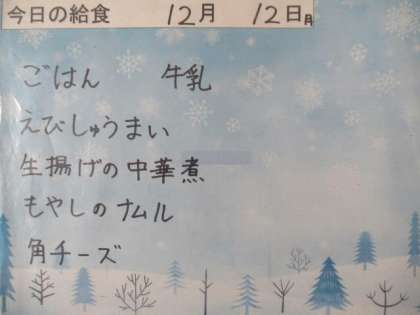 今日の給食 12月 12日月
ごはん 牛乳
えびしゅうまい
生揚げの中華煮
もやしのナムル
角チーズ